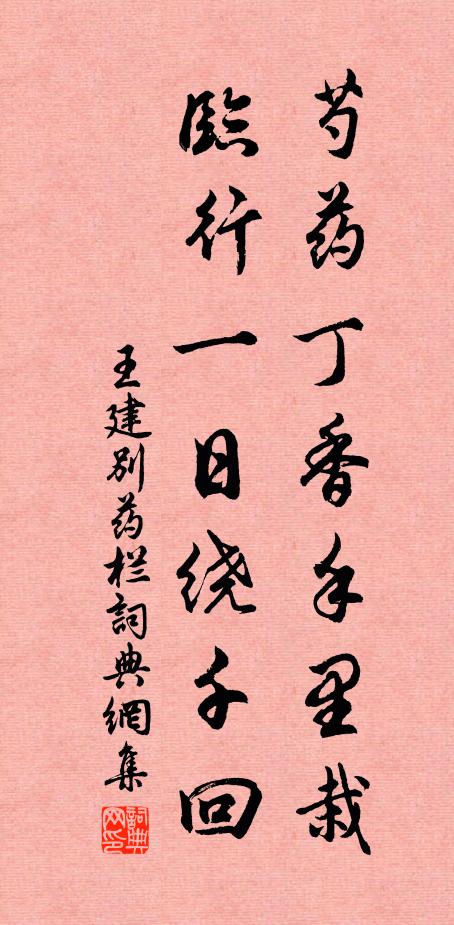 芍药丁香手里栽
臨行一日绕千回
王建别药栏詞典網集
詞典网印